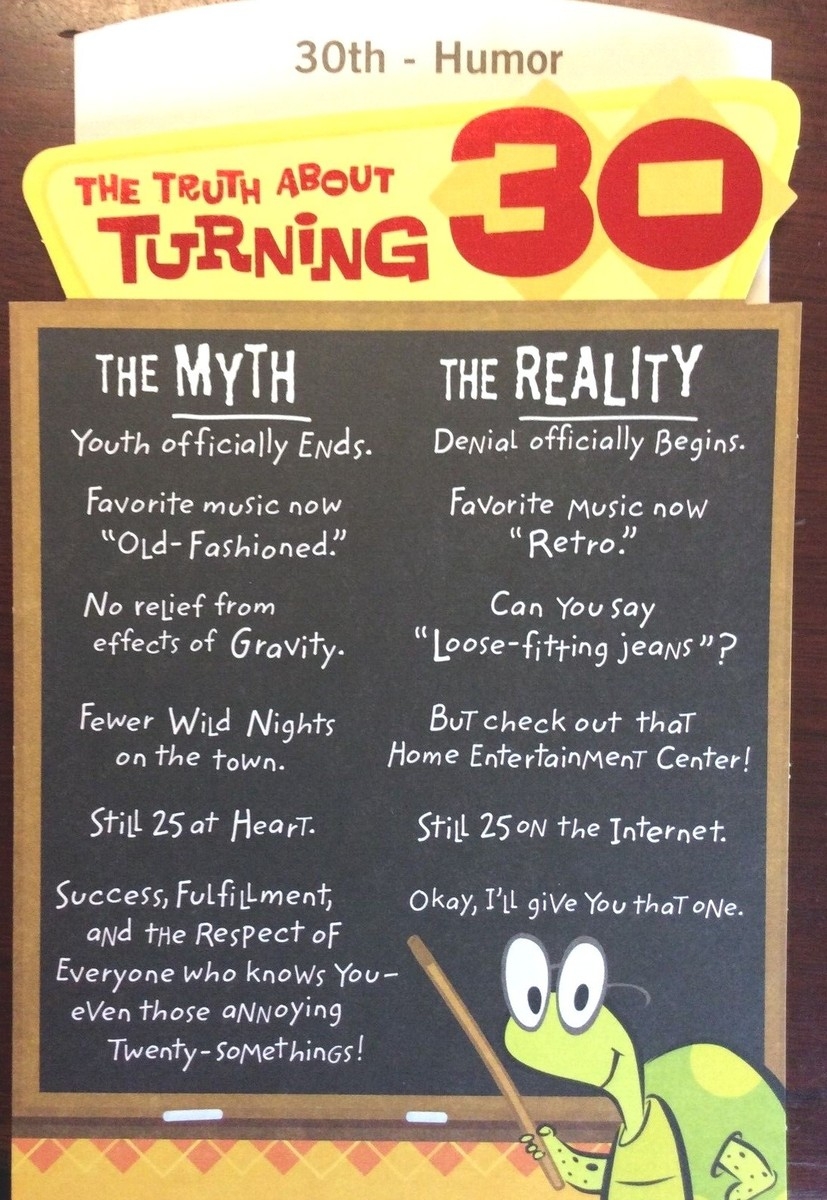 30th - Humor
THE TRUTH ABOUT
TURNING 30
THE MYTH
Youth officially Ends.
Favorite music now
"Old-Fashioned."
No relief from
effects of Gravity.
Fewer Wild Nights
on the town.
Still 25 at Heart.
Success, Fulfillment,
and the Respect of
Everyone who knows You–
even those annoying
Twenty-somethings!
THE REALITY
Denial officially Begins.
Favorite Music now
"Retro."
Can You say
"Loose-fitting jeans"?
But check out that
Home Entertainment Center!
Still 25 on the Internet.
Okay, I'll give You that one.